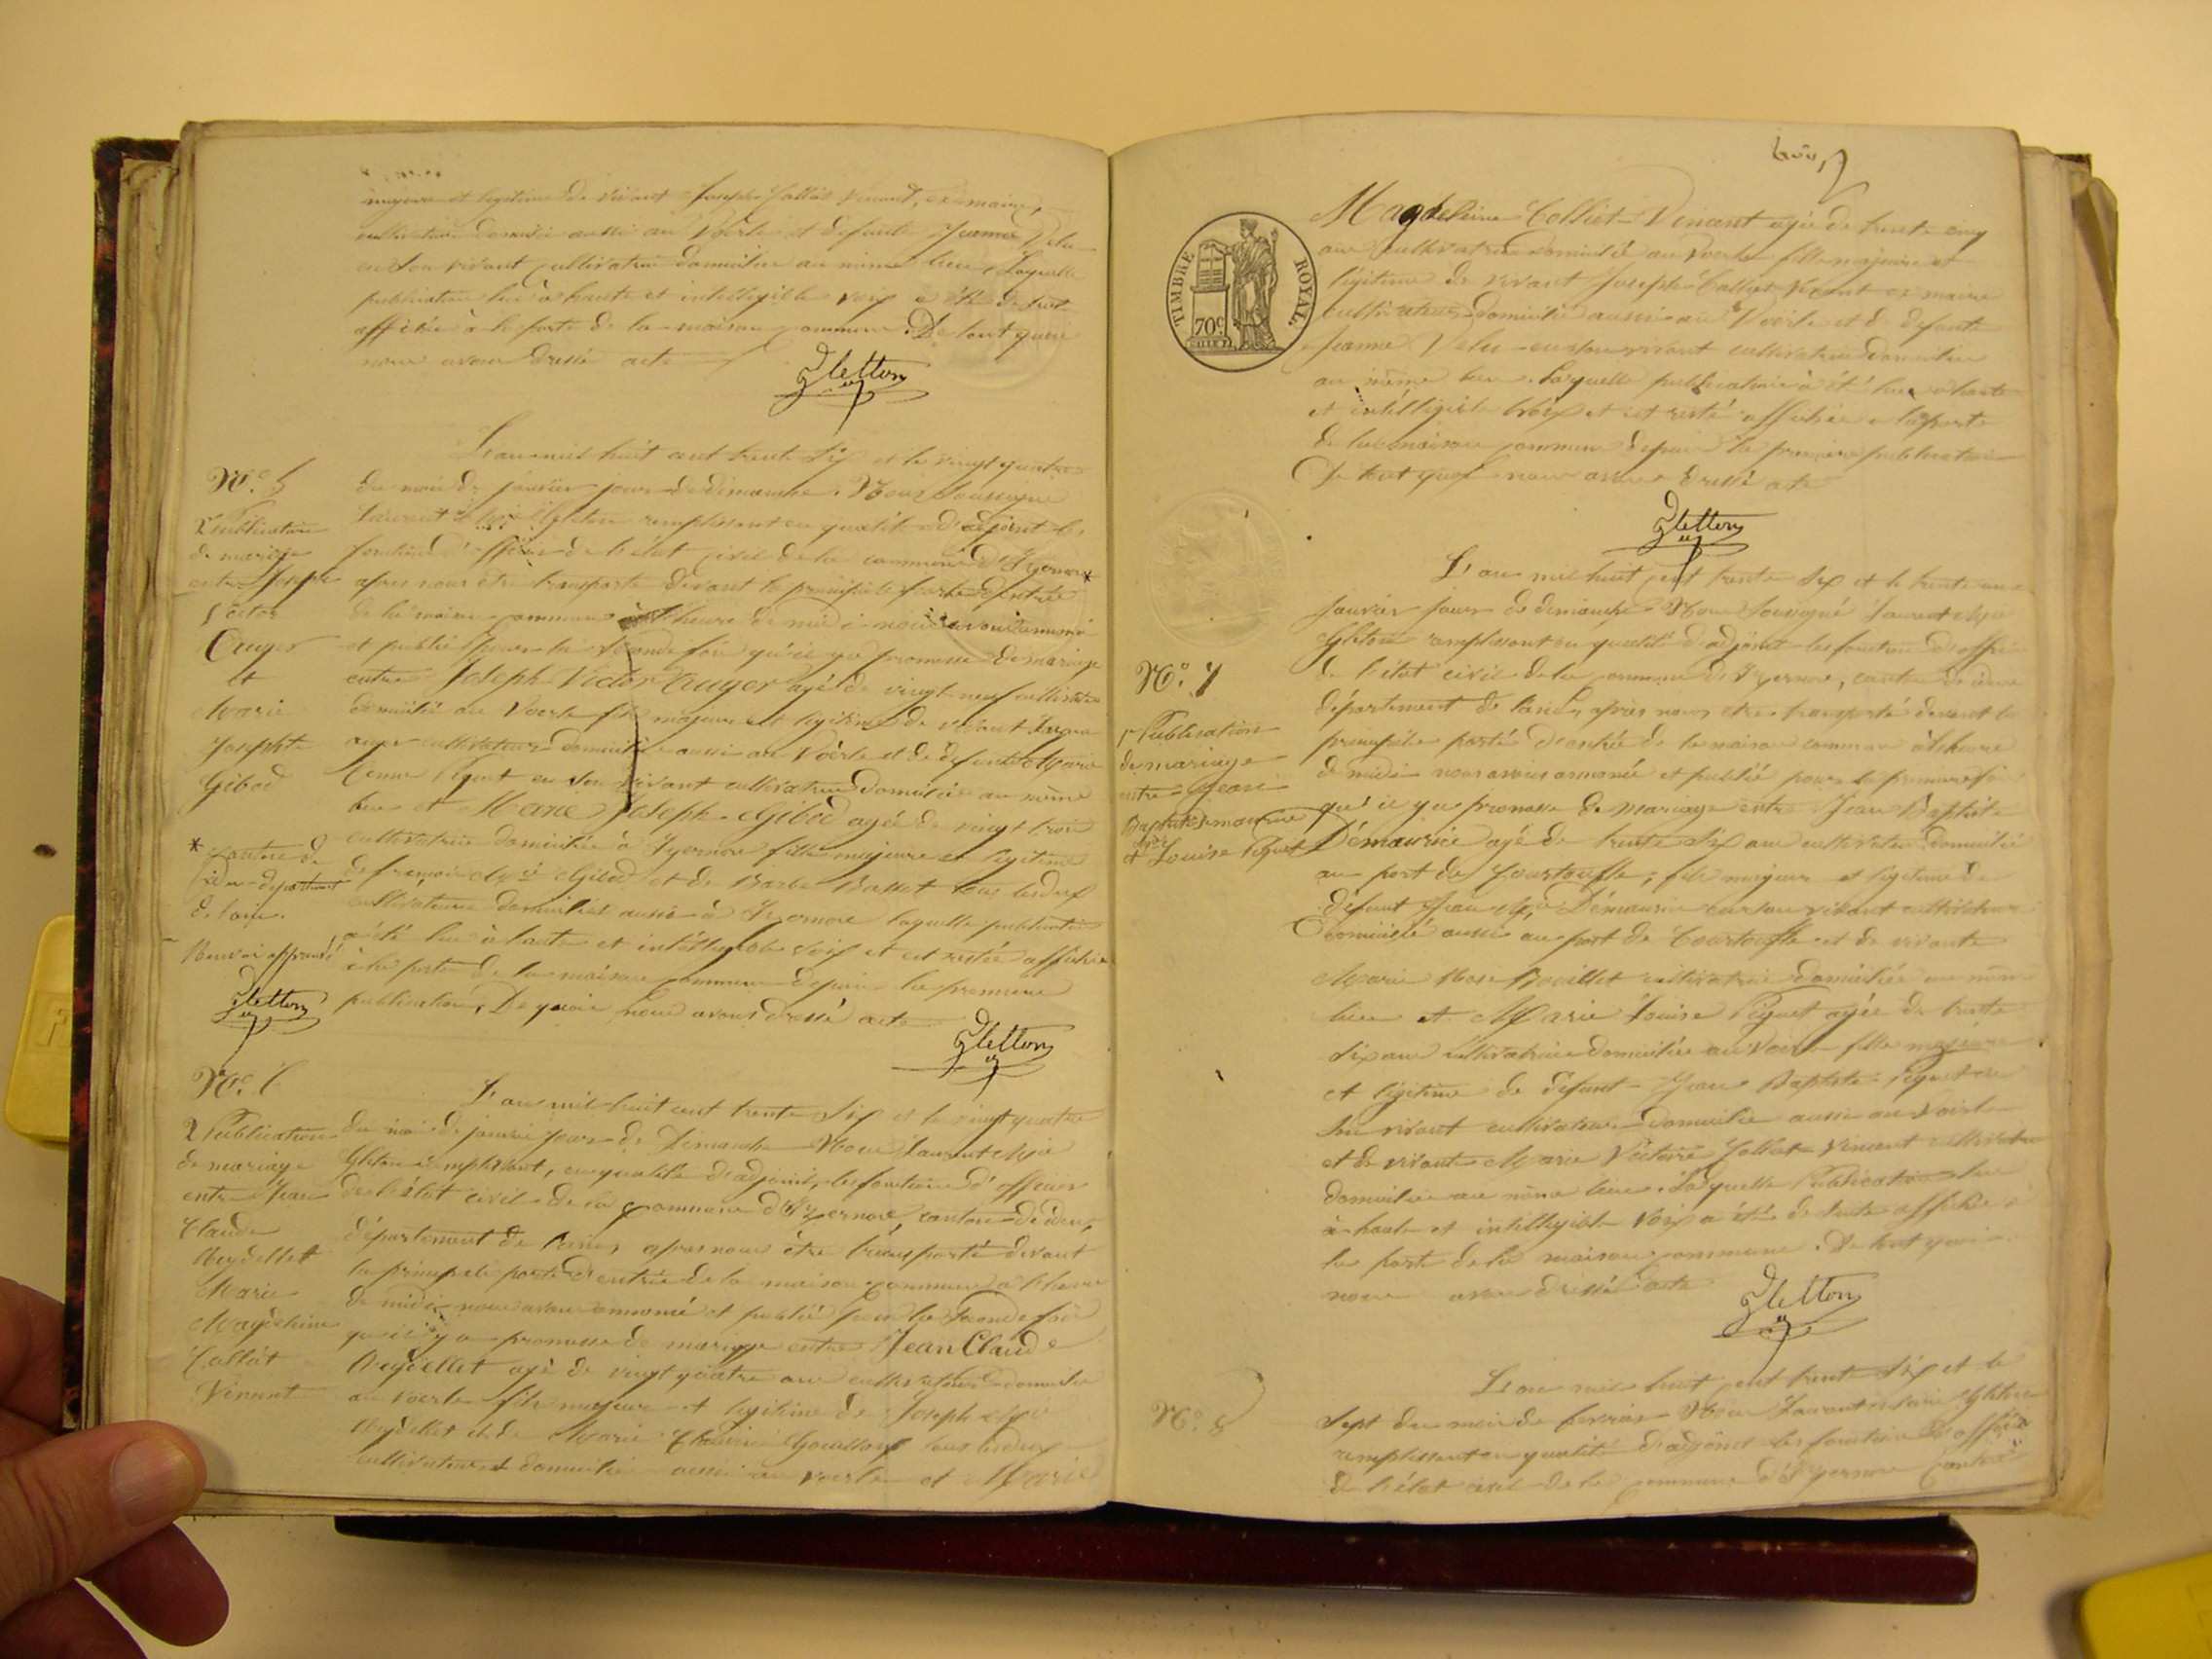 majeure et légitime de vivant Joseph Collet Vincent, ex maire,
cultivateur domicilié aussi au Voerle et défunte Jeanne Velu
en son vivant cultivatrice domiciliée au même lieu, Laquelle
publication lue à haute et intelligible voix a été de suite
affichée à la porte de la maison commune. De tout quoi
nous avons dressé acte
Gletton
N.º 5
2e Publication
de mariage
entre Joseph
Victor
Auger
et
Marie
Josephte
Gibod
* canton de
département
de l'ain.
Renvoi approuvé
Gletton
L'an mil huit cent trente six et le vingt quatre
du mois de janvier jour de dimanche. Nous soussigné
Laurent Mie Gleton remplissant en qualité d'adjoint les
fonctions d'officier de l'état civil de la commune d'Izernore *
après nous être transporté devant la principale porte d'entrée
de la maison commune à l'heure de midi nous avons annoncé
et publié pour la seconde fois qu'il y a promesse de mariage
entre Joseph Victor Auger agé de vingt neuf cultivateur
domicilié au Voerle fils majeur et légitime de vivant
auger cultivateur domicilié aussi au Voerle et de défunte Marie
Piquet en son vivant cultivatrice domiciliée au même
lieu et Marie Joseph Gibod agée de vingt trois
cultivatrice domiciliée à Izernore fille majeure et légitime
de françois Mie Gibod et de Barbe Ballet tous les deux
cultivateurs domiciliés aussi à Izernore laquelle publication
a été lue à haute et intelligible voix et est restée affichée
à la porte de la maison commune depuis la première
publication, De quoi nous avons dressé acte
Gletton
N.º 6
2 Publication
de mariage
entre Jean
Claude
Neydellet
Marie
Magdeleine
Collet
Vincent
L'an mil huit cent trente six et le vingt quatre
du mois de janvier jour de Dimanche Nous Laurent Mie
Gleton remplissant, en qualité d'adjoint, les fonctions d'officier
de l'état civil de la commune d'Izernore, canton
département de l'ain, après nous être transporté devant
la principale porte d'entrée de la maison commune à l'heure
de midi nous avons annoncé et publié pour la seconde fois
qu'il y a promesse de mariage entre Jean Claude
Neydellet agé de vingt quatre ans cultivateur domicilié
au Voerle fils majeur et légitime de Joseph Mie
Neydellet et de Marie tous les deux
cultivateurs domiciliés aussi au Voerle et Marie
TIMBRE ROYAL.
70c
Magdeleine Colliet Vincent agée de trente cinq
ans cultivatrice domiciliée au Voerle fille majeure et
légitime de vivant Joseph Colliet Vincent ex maire
cultivateur domicilié aussi au Voerle et de défunte
Jeanne Velu en son vivant cultivatrice domiciliée
au même lieu. Laquelle publication a été lue à haute
et intelligible voix et est restée affichée à la porte
de la maison commune depuis la première publication
De tout quoi nous avons dressé acte
Gletton
N.º 7
1re Publication
de mariage
entre Jean
Baptiste Démaurice
et Louise Piquet
L'an mil huit cent trente six et le trente un
Janvier jour de dimanche Nous Soussigné Laurent Mie
Gleton remplissant en qualité d'adjoint les fonctions d'officier
de l'état civil de la commune d'Izernore, canton
département de l'ain, après nous être transporté devant la
principale porte d'entrée de la maison commune à l'heure
de midi nous avons annoncé et publié pour la première fois
qu'il y a promesse de mariage entre Jean Baptiste
Démaurice agé de trente six ans cultivateur domicilié
au port de Courtouffle; fils majeur et légitime de
défunt Jean Démaurice en son vivant cultivateur
domicilié aussi au port de Courtouffle et de vivante
Marie Rose cultivatrice domiciliée au même
lieu et Marie Louise Piquet agée de trente
six ans cultivatrice domiciliée au Voerle fille majeure
et légitime de défunt Jean Baptiste Piquet en
son vivant cultivateur domicilié aussi au Voerle
et de vivante Marie Victoire Collet Vincent cultivatrice
domiciliée au même lieu. Laquelle Publication lue
à haute et intelligible voix a été de suite affichée à
la porte de la maison commune. De tout quoi
nous avons dressé acte
Gletton
N.º 8
L'an mil huit cent trente six et le
Sept du mois de fevrier Nous Laurent Marie Gleton
remplissant en qualité d'adjoint les fonctions d'officier
de l'état civil de la commune d'Izernore Canton